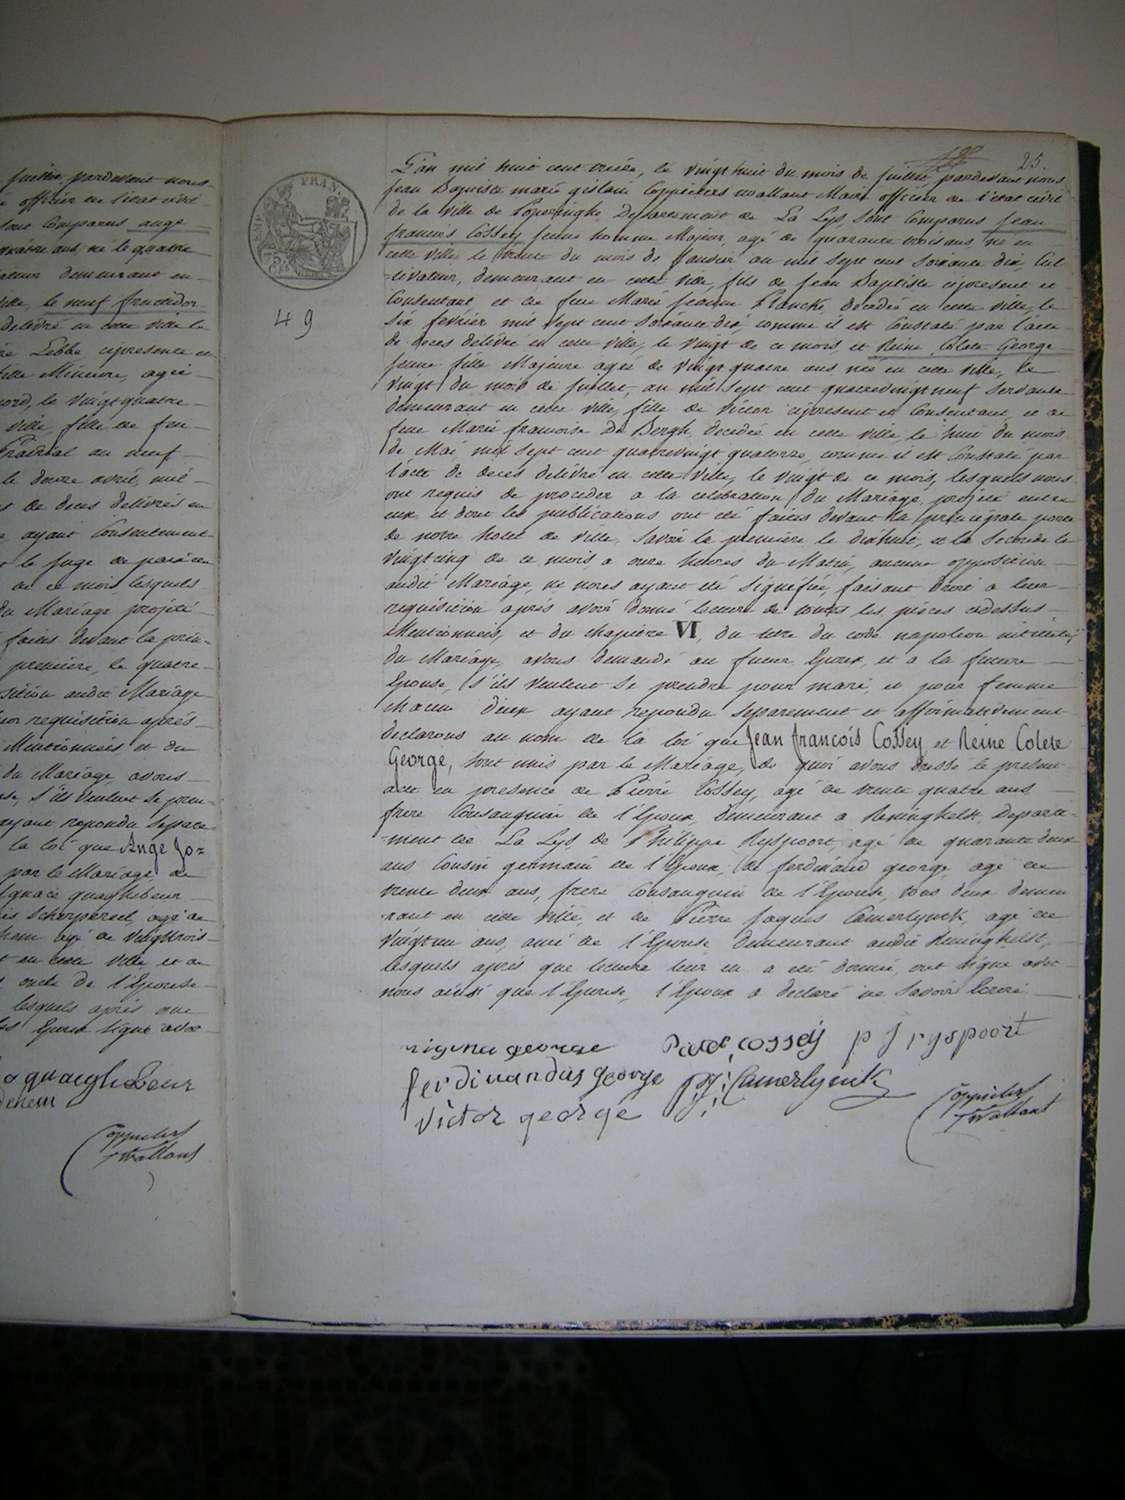 juillet, pardevant nous
officier de l'état civil
sont comparus ange
quatre ans, né le quatre
demeurant en
ville, le neuf fructidor
delivré en cette ville le
Lebbe cipresente et
fille Mineure, agée
le vingt quatre
ville fille de feu
Prairial an neuf
le douze avril, mil
de deces delivrés en
ayant Consentement
le juge de paix
de ce mois lesquels
du Mariage projeté
faites devant la prin
premiere, le quatre
audit Mariage
requisition après
Mentionnées et du
du Mariage, avons
s'ils veulent se pren
ayant repondu separe
la loi que Ange Jo=
par le Mariage de
quaghebeur
Scherpereel, agé de
agé de vingt trois
en cette ville et de
oncle de l'Epouse
lesquels après que
Epoux signé avec
quaghebeur
Coppieters
Twallant
FRAN.
EMP.
75
49
25.
L'an mil huit cent treize, le vingt huit du mois de juillet pardevant nous
jean Baptiste marie gislain Coppieters wallant Maire officier de l'etat civil
de la Ville de Poperinghe, Departement de La Lys, sont Comparus Jean
francois Cossey jeune homme Majeur, agé de quarante trois ans né en
cette ville le trente du mois de Janvier an mil sept cent soixante dix, Cul
-tivateur, demeurant en cette ville, fils de Jean Baptiste cipresent et
Consentant et de feue Marie jeanne Plancke, decedée en cette ville, le
six fevrier mil sept cent soixante dix, comme il est Constaté par l'acte
de deces delivré en cette ville, le vingt de ce mois, et Reine Colete George
jeune fille Majeure agée de vingt quatre ans née en cette ville, le
vingt du mois de juillet, an mil sept cent quatrevingt neuf servante
demeurant en cette ville, fille de Victor cipresent et Consentant, et de
feue Marie francoise De Bergh, decedée en cette ville le huit du mois
de Mai, mil sept cent quatrevingt quatorze, comme il est Constaté par
l'acte de deces delivré en cette ville, le vingt de ce mois, lesquels nous
ont requis de proceder a la celebration du Mariage projeté entre
eux et dont les publications ont été faites devant la principale porte
de notre hotel de ville, savoir la premiere le dixhuit, et la seconde le
vingtcinq de ce mois a onze heures du Matin, aucune opposition
audit Mariage, ne nous ayant été signifiée, faisant droit a leur
requisition après avoir donné lecture de toutes les pièces cidessus
Mentionnées, et du chapitre VI, du titre du code napoleon intitulé
du Mariage, avons demandé au futur Epoux, et a la future
Epouse, s'ils veulent se prendre pour mari, et pour femme
chacun d'eux ayant repondu separement et affirmativement
declarons au nom de la loi que Jean francois Cossey, et Reine Colete
George, sont unis par le Mariage, de quoi avons dressé le present
acte en presence de Pierre Cossey, agé de trente quatre ans
frere Consanguin de l'Epoux, demeurant a Reninghelst, Departe
-ment de La Lys, de Philippe Ryspoort, agé de quarante deux
ans Cousin germain de l'Epoux, de ferdinand george, agé de
trente deux ans, frere Consanguin de l'Epouse, tous deux demeu
-rant en cette ville, et de Pierre Jaques Camerlynck, agé de
vingt un ans, ami de l'Epouse demeurant audit Reninghelst,
lesquels après que lecture leur en a été donnée, ont signé avec
nous ainsi que l'Epouse, l'Epoux a declaré ne savoir Ecrire
regina george cossey p J ryspoort
ferdinandus george pJ: Camerlynck
victor george
Coppieters
Twallant